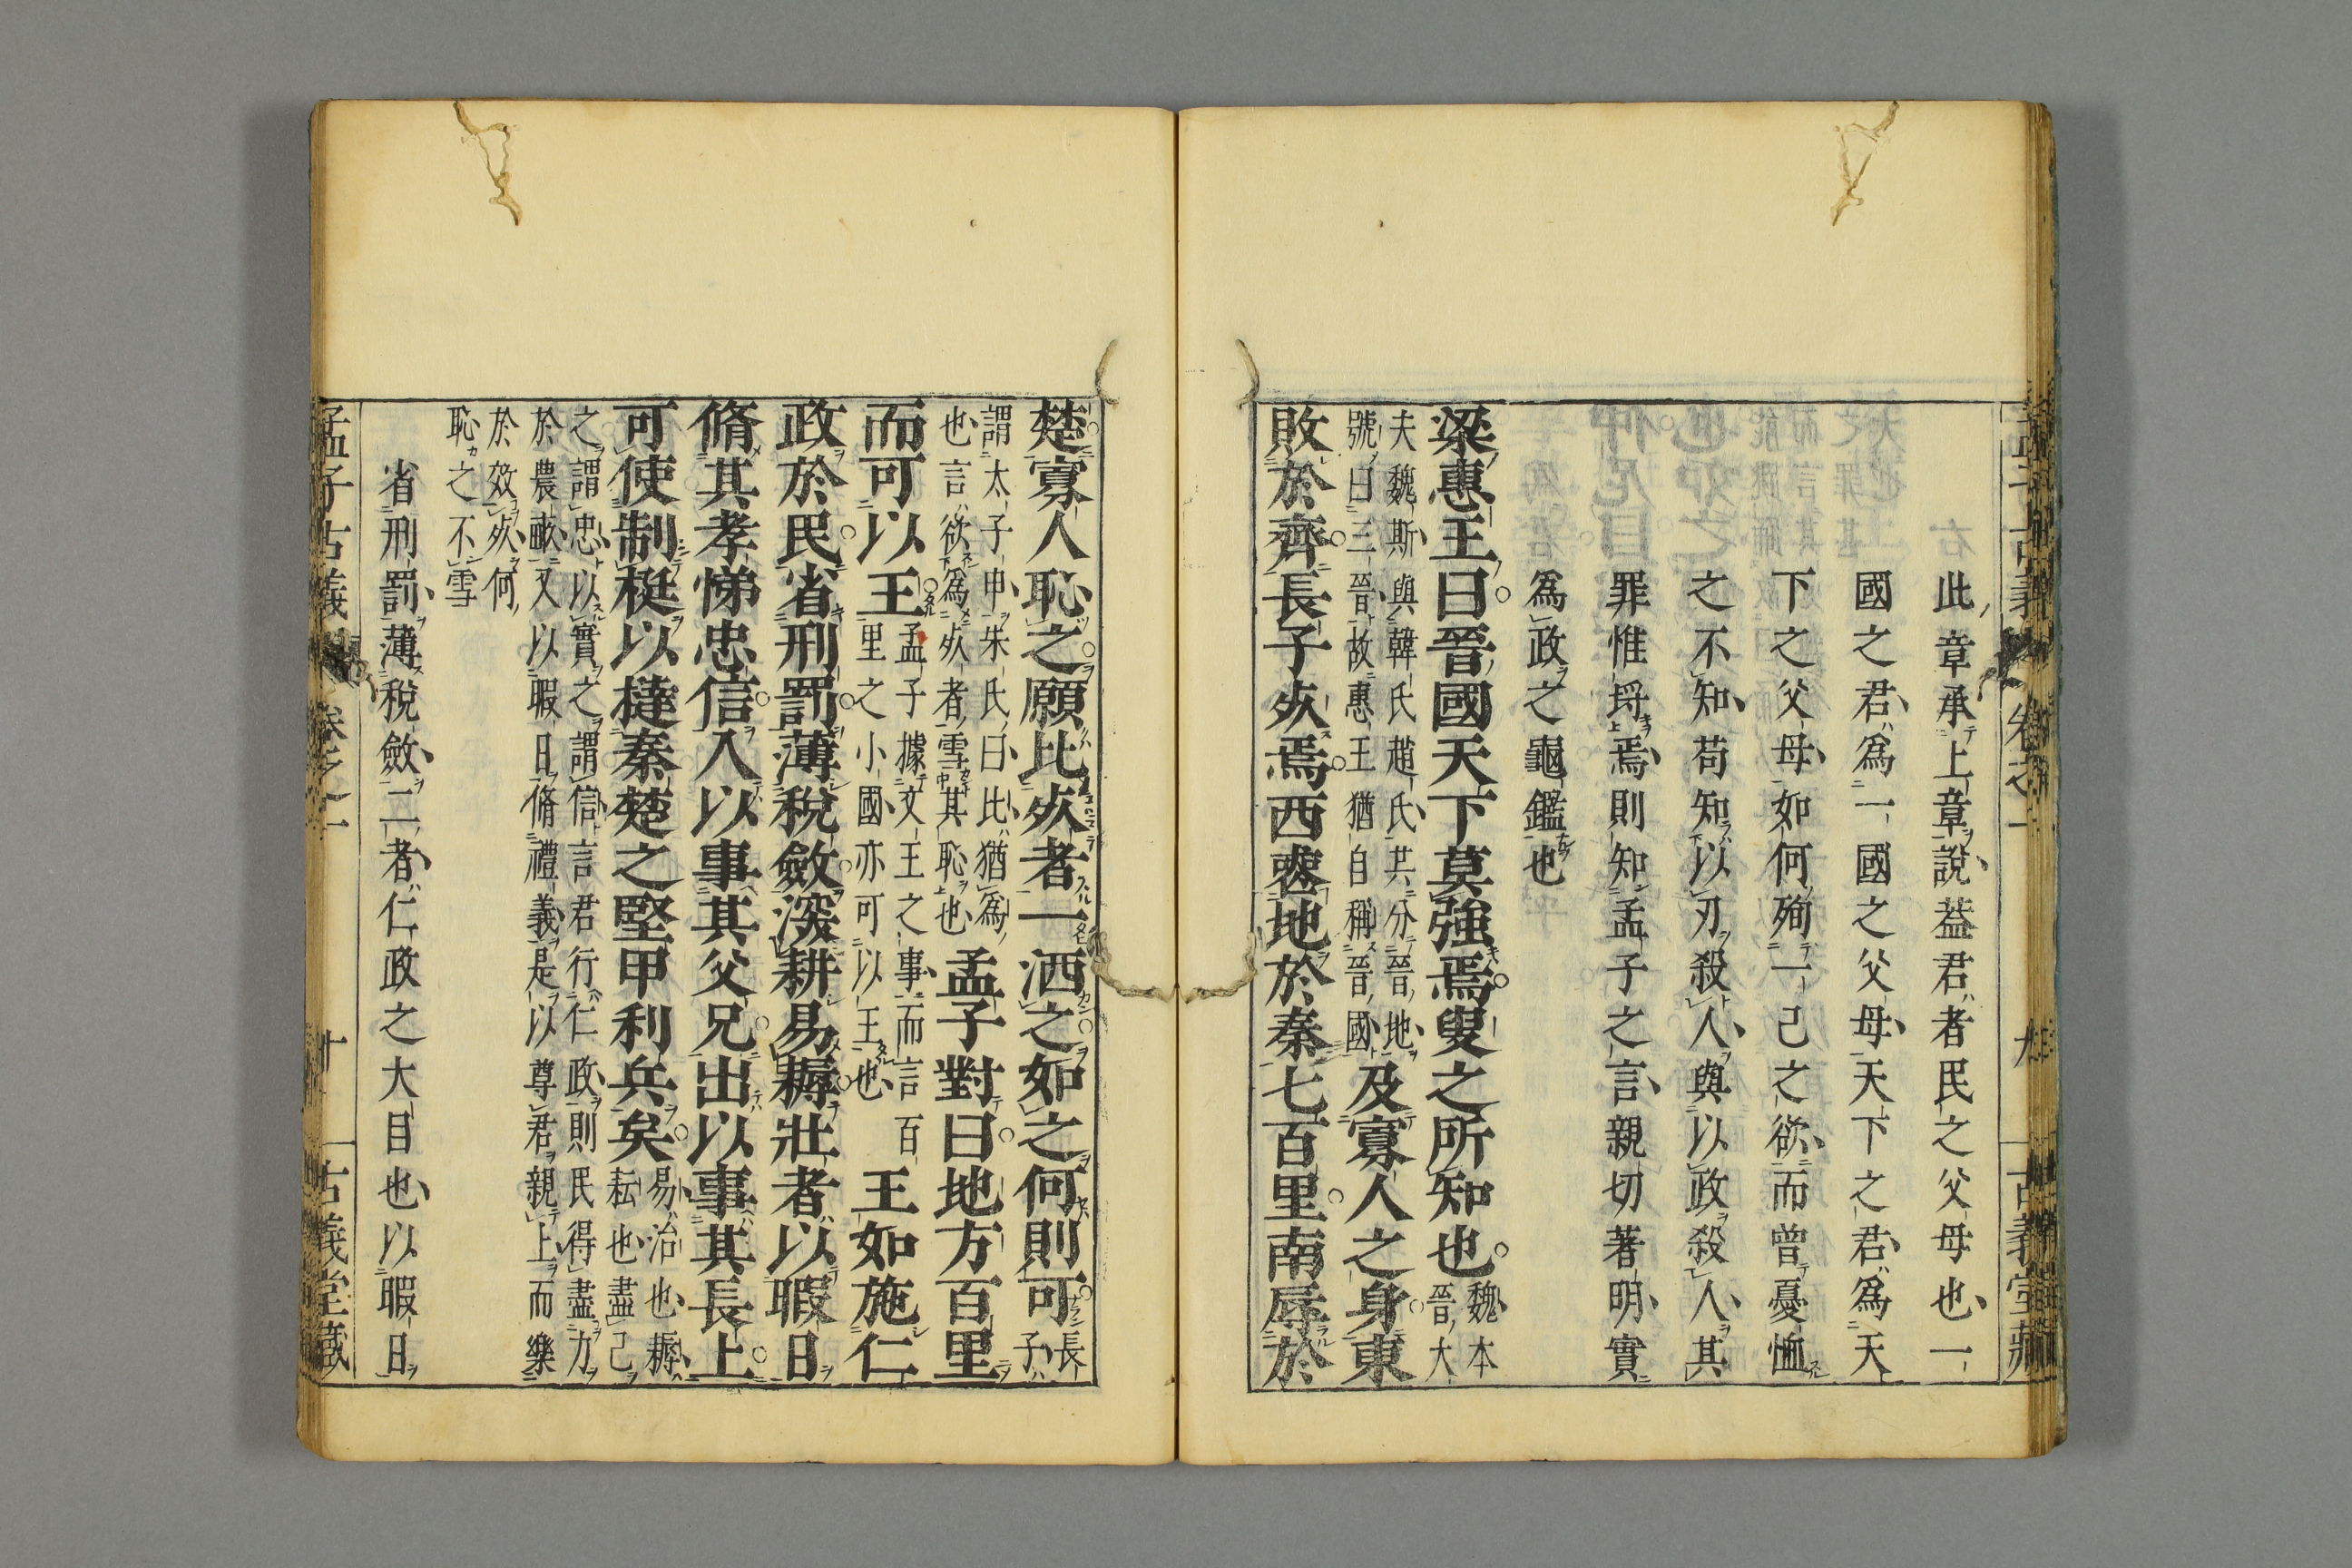 此章承上章說蓋君者民之父母也一
國之君爲一國之父母天下之君爲天
下之父母如何殉一己之欲而曾憂恤
之不知苟知以刃殺人與以政殺人其
罪惟均焉則知孟子之言親切著明實
爲政之龜鑑也
梁惠王曰晉國天下莫強焉叟之所知也魏本
晉大
夫魏斯與韓氏趙氏共分晉地
號曰三晉故惠王猶自稱晉國及寡人之身東
敗於齊長子死焉西喪地於秦七百里南辱於
楚寡人恥之願比死者一洒之如之何則可長
子
謂太子申朱氏曰比猶爲
也言欲爲死者雪其恥也孟子對曰地方百里
而可以王孟子據文王之事而言百
里之小國亦可以王也王如施仁
政於民省刑罰薄稅斂深耕易耨壯者以暇日
脩其孝悌忠信入以事其父兄出以事其長上
可使制梃以撻秦楚之堅甲利兵矣易治也耨
耘也盡己
之謂忠以實之謂信言君行仁政則民得盡力
於農畝又以暇日脩禮義是以尊君親上而樂
於效死何
恥之不雪
省刑罰薄稅斂二者仁政之大目也以暇日
孟子古義 卷之一 十 古義堂藏